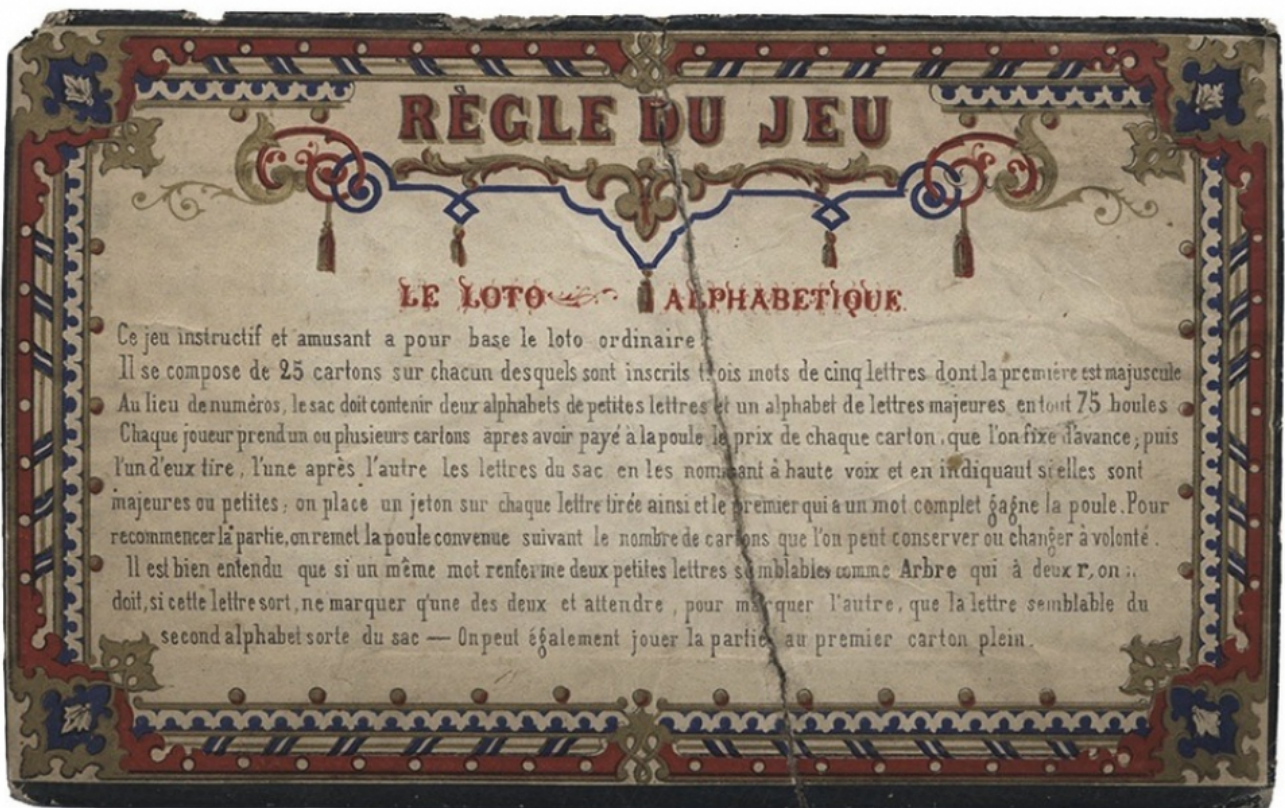 RÈGLE DU JEU
LE LOTO ALPHABETIQUE.
Ce jeu instructif et amusant a pour base le loto ordinaire
Il se compose de 25 cartons sur chacun desquels sont inscrits trois mots de cinq lettres dont la première est majuscule
Au lieu de numéros, le sac doit contenir deux alphabets de petites lettres et un alphabet de lettres majeures en tout 75 boules
Chaque joueur prend un ou plusieurs cartons apres avoir payé à la poule le prix de chaque carton, que l'on fixe d'avance; puis
l'un d'eux tire, l'une après l'autre les lettres du sac en les nommant à haute voix et en indiquaut si elles sont
majeures ou petites; on place un jeton sur chaque lettre tirée ainsi et le premier qui a un mot complet gagne la poule. Pour
recommencer la partie, on remet la poule convenue suivant le nombre de cartons que l'on peut conserver ou changer à volonté.
Il est bien entendu que si un même mot renferme deux petites lettres semblables comme Arbre qui à deux r, on
doit, si cette lettre sort, ne marquer q'une des deux et attendre, pour marquer l'autre, que la lettre semblable du
second alphabet sorte du sac — On peut également jouer la partie au premier carton plein.